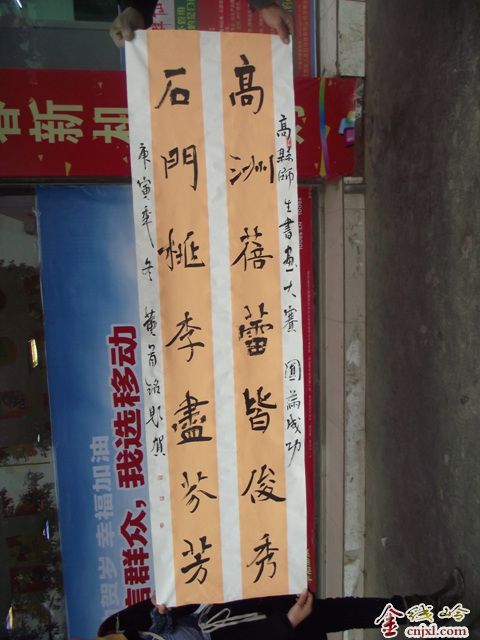 高縣師生書畫大賽 圓滿成功
高洲蓓蕾皆俊秀
石門桃李盡芬芳
庚寅年冬 黃首铭題賀
春新
賀岁 幸福加油
信群众，我选移动
金线岭
cnjxl.com